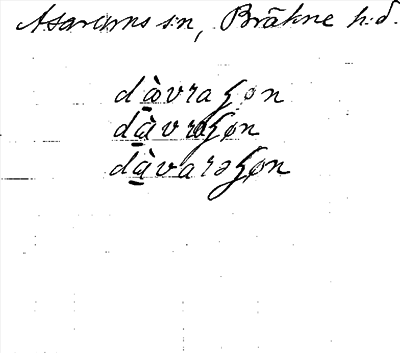 Asarums sn, Bräkne hd.
dàvraʒøn
dàvrəʒøn
dàvarəʒøn